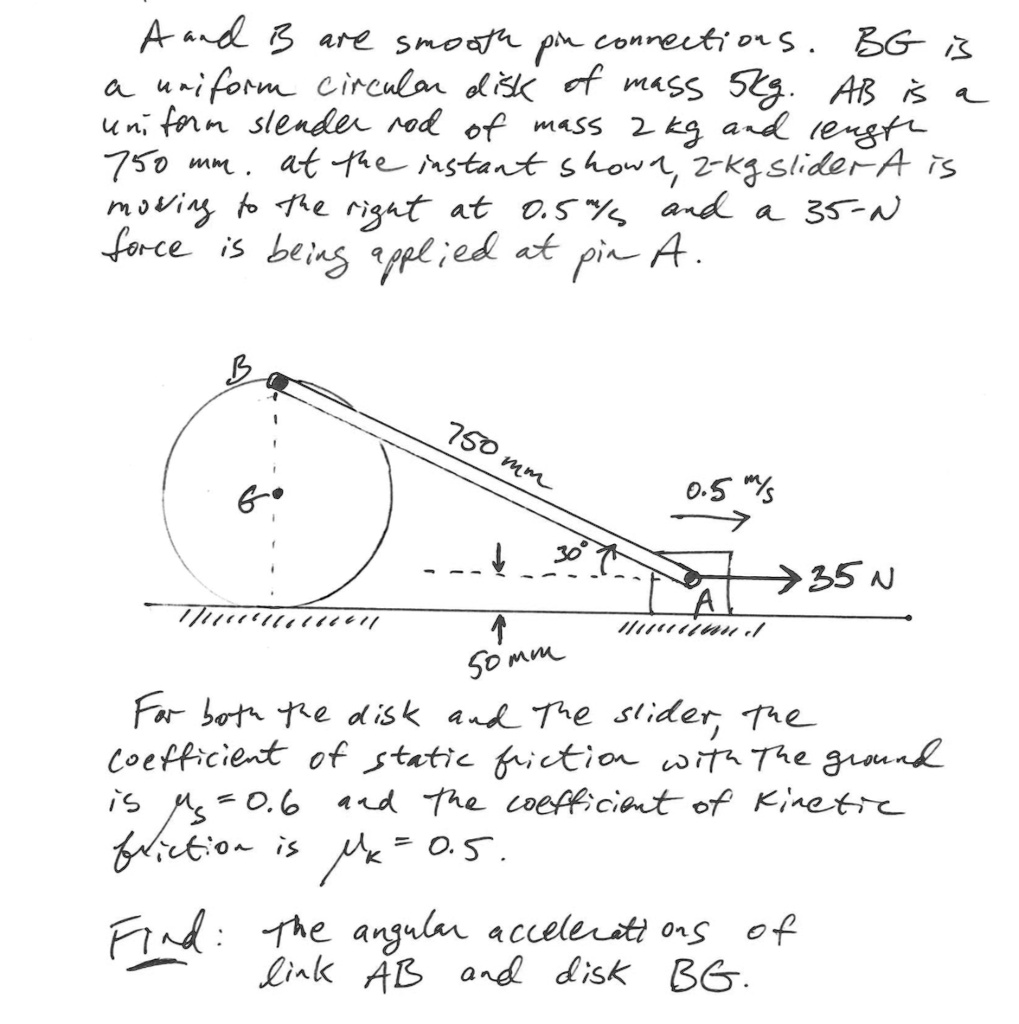 A and B are smooth pin connections. BG is
a uniform circular disk of mass 5kg. AB is a
uniform slender rod of mass 2 kg and length
750 mm. at the instant shown, 2-kg slider A is
moving to the right at 0.5 m/s and a 35-N
force is being applied at pin A.
B
750 mm
G
0.5 m/s
30°
35 N
A
50 mm
For both the disk and the slider, the
coefficient of static friction with the ground
is μs = 0.6 and the coefficient of kinetic
friction is μK = 0.5.
Find: the angular accelerations of
link AB and disk BG.